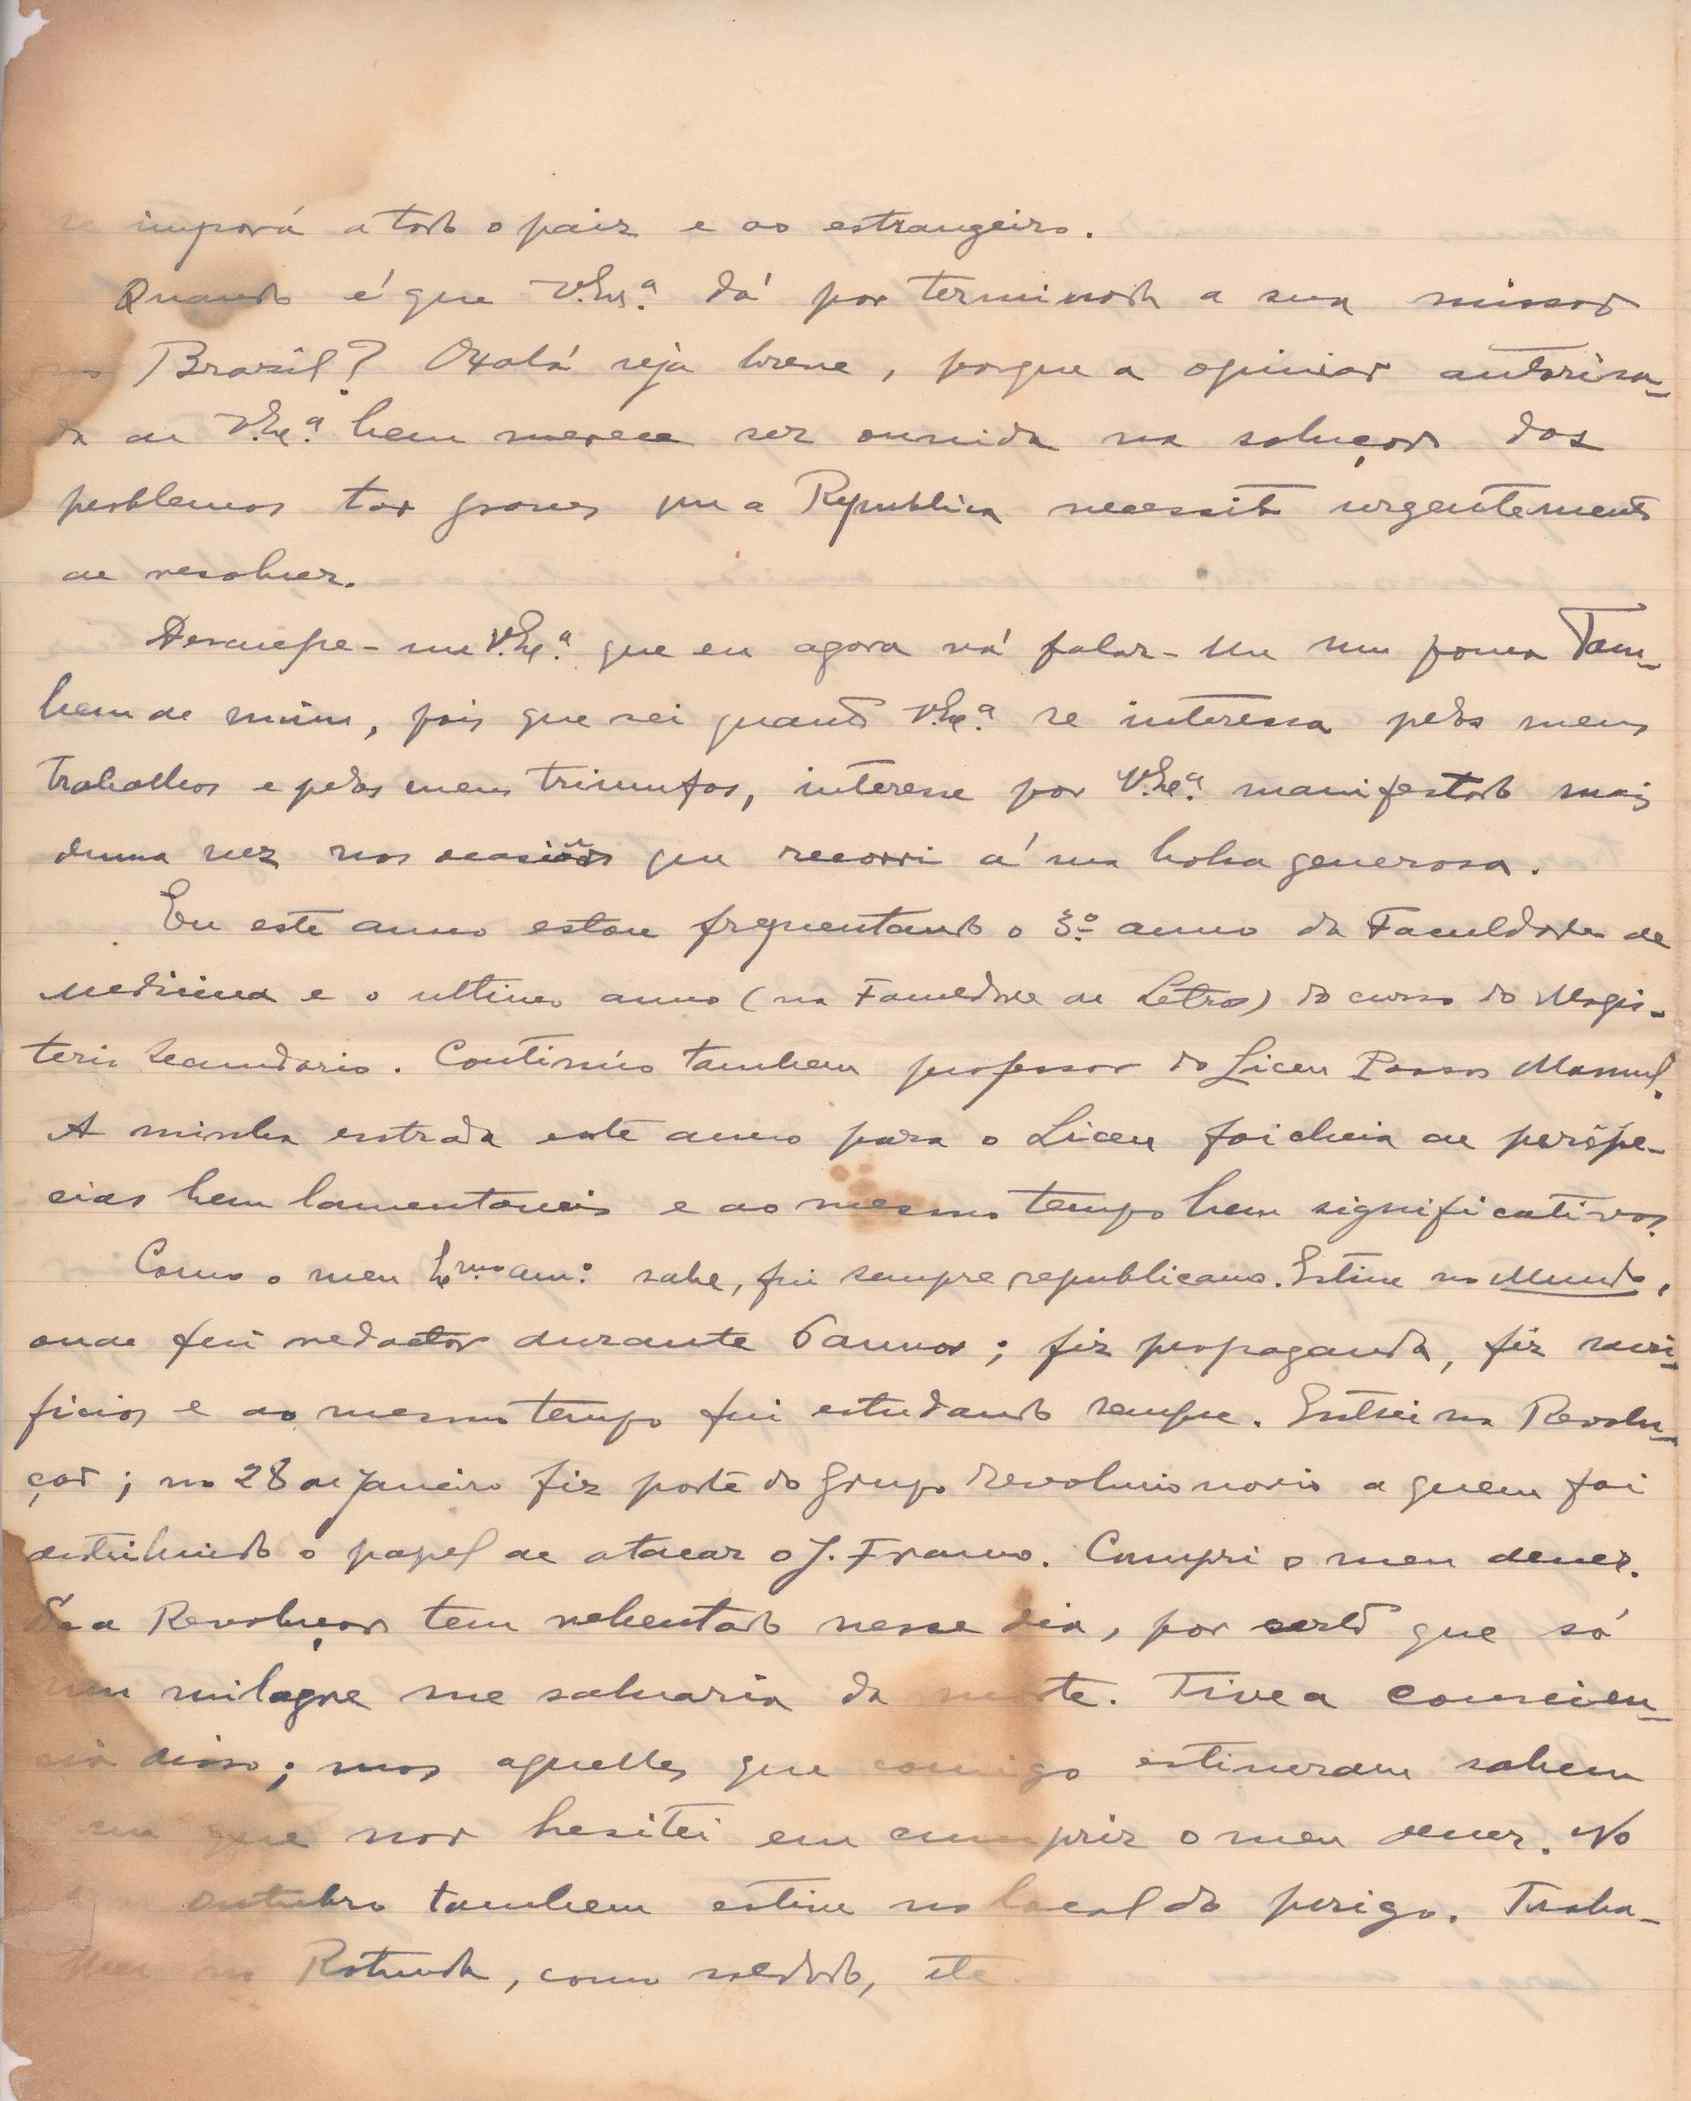 se imporá a todo o paiz e ao estrangeiro.
Quando é que V. Ex.ª dá por terminada a sua missão
no Brazil? Oxalá seja breve, porque a opinião autorisa-
da de V. Ex.ª bem merece ser ouvida na solução dos
problemas tão graves que a Republica necessita urgentemente
de resolver.
Desculpe-me V. Ex.ª que eu agora vá falar-lhe um pouco Tam-
bem de mim, pois que sei quanto V. Ex.ª se interessa pelos meus
trabalhos e pelos meus triumfos, interesse por V. Ex.ª manifestado mais
duma vez nas ocasiões que recorri á sua bolsa generosa.
Eu este anno estou frequentando o 3.º anno da Faculdade de
Medicina e o ultimo anno (na Faculdade de Letras) do curso do Magis-
terio Secundario. Continúo tambem professor do Liceu Passos Manuel.
A minha entrada este anno para o Liceu foi cheia de peripe-
cias bem lamentaveis e ao mesmo tempo bem significativas.
Como o meu Ex.mo am.º sabe, fui sempre republicano. Estive no Mundo,
onde fui redactor durante 6 annos; fiz propaganda, fiz sacri-
ficios e ao mesmo tempo fui estudando sempre. Entrei na Revolu-
ção; no 28 de Janeiro fiz parte do Grupo revolucionario a quem foi
distribuido o papel de atacar o J. Franco. Cumpri o meu dever.
Se a Revolução tem rebentado nesse dia, por certo que só
um milagre me salvaria da morte. Tive a conscien-
cia disso; mas aquelles que comigo estiveram sabem
bem que não hesitei em cumprir o meu dever. No
outubro tambem estive no local do perigo. Traba-
lhei na Rotunda, como soldado, etc.